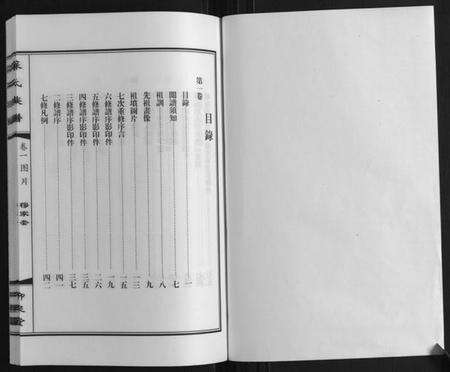 第一卷
目錄
目錄……一
閱譜須知……七
祖訓……八
先祖畫像……九
祖墳圖片……一三
七次重修序言……一五
六修譜序影印件……一九
五修譜序影印件……二六
四修譜序影印件……三五
三修譜序影印件……三七
二修譜序……四一
七修凡例……四二
氏族譜
卷一图片